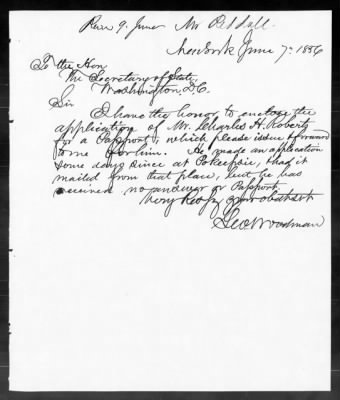 Recd 9. June Mr Beddall.
New York June 7. 1856
To the Hon
The Secretary of State,
Washington D.C.
Sir
I have the honor to enclose the
application of Mr. Charles H. Roberts
for a Passport, which please issue & forward
to me for him. He made an application
some days since at Pokeepsie, & had it
mailed from that place, but he has
received no answer or Passport.
Very Resfy your obdt svt
Geo Woodman